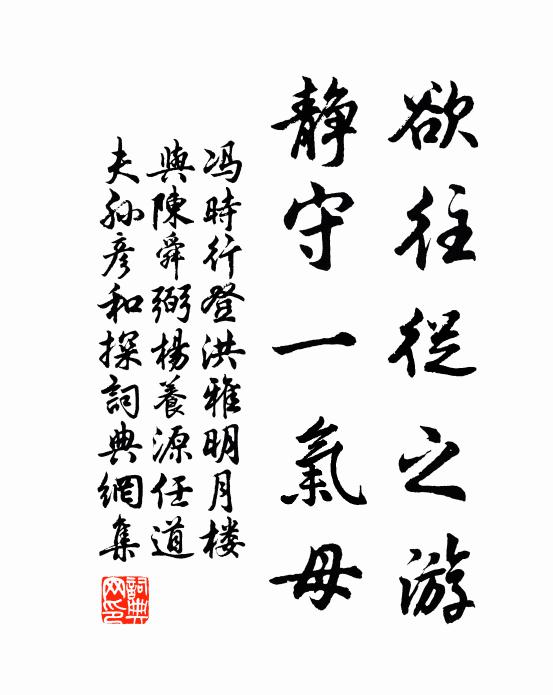 欲往從之游
靜守一氣母
冯時行登洪雅明月楼
與陳舜弼楊養源任道
夫孙彦和探詞典網集
詞典
网印